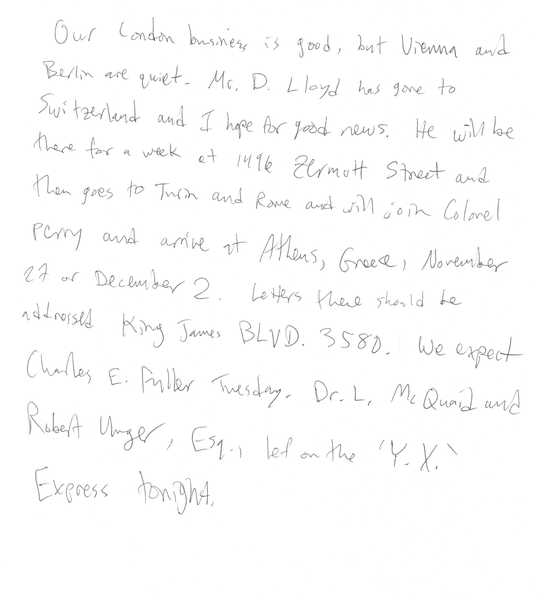 Our London business is good, but Vienna and
Berlin are quiet. Mr. D. Lloyd has gone to
Switzerland and I hope for good news. He will be
there for a week at 1496 Zermott Street and
then goes to Turin and Rome and will join Colonel
Perry and arrive at Athens, Greece, November
27 or December 2. Letters there should be
addressed King James BLVD. 3580. We expect
Charles E. Fuller Tuesday. Dr. L. McQuaid and
Robert Unger, Esq., left on the 'Y.X.'
Express tonight.